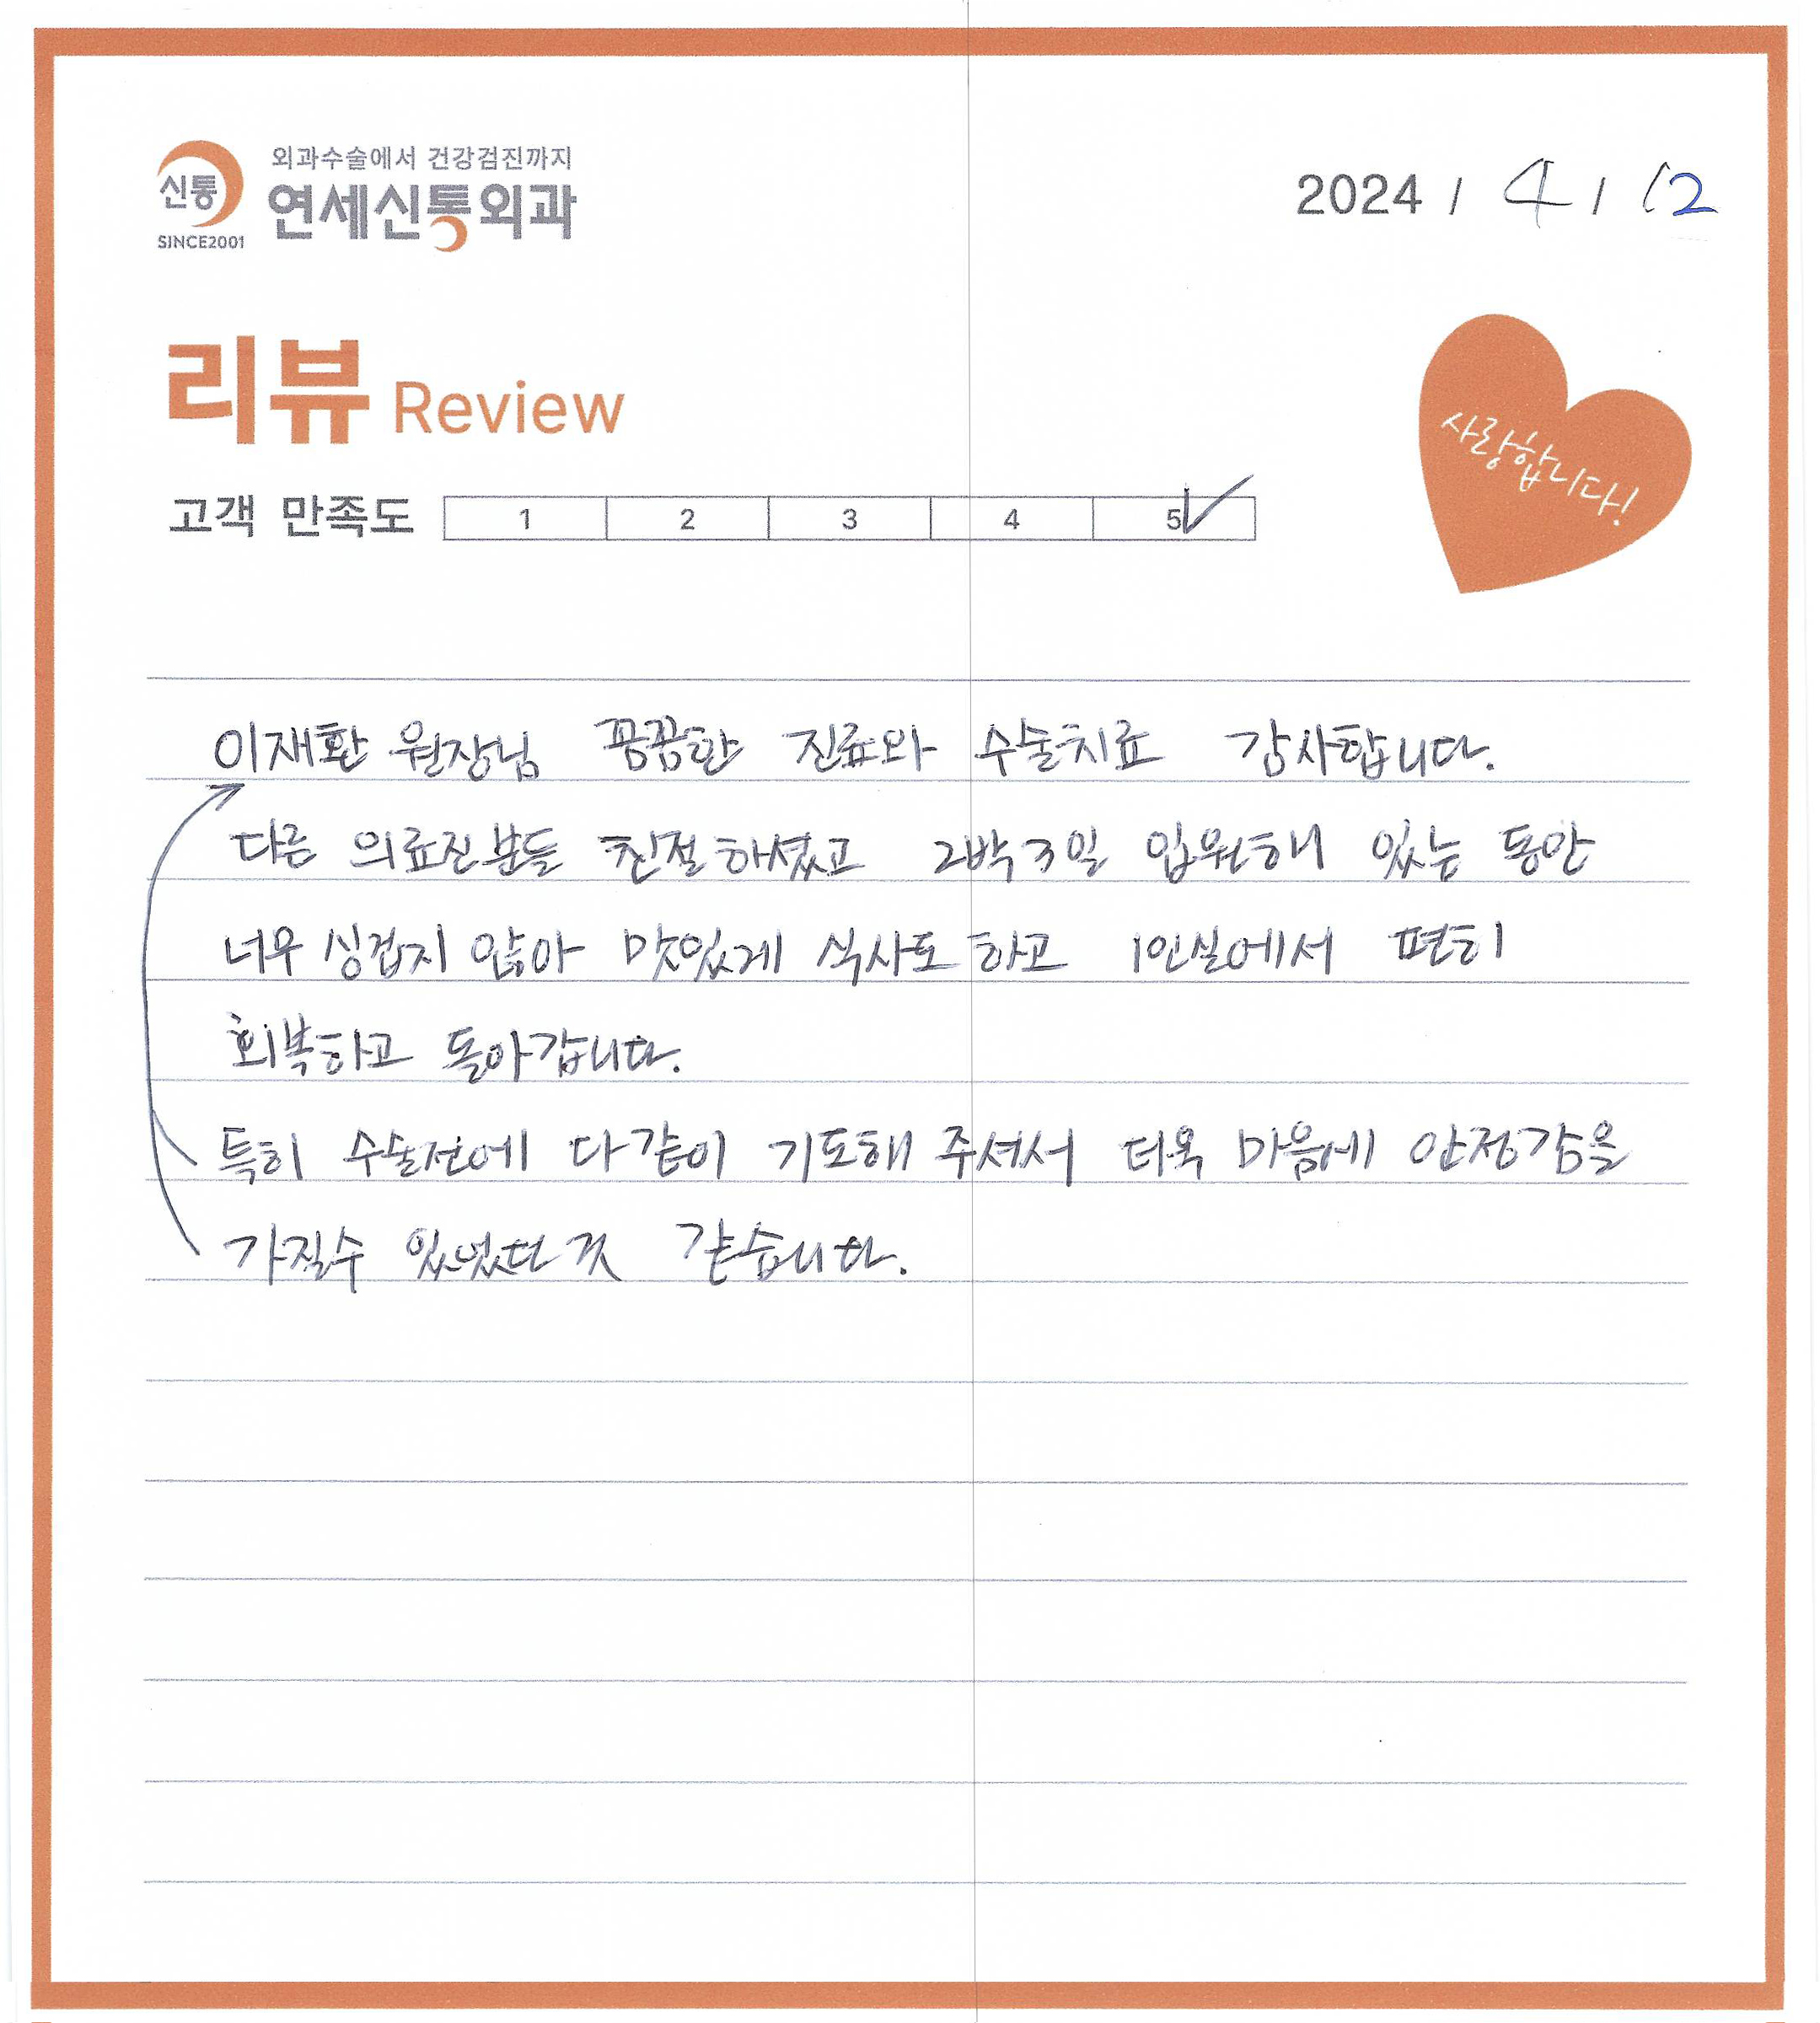 외과수술에서 건강검진까지
신통 연세신통외과
SINCE2001
2024 / 4 / 12
리뷰 Review
사랑합니다!
고객 만족도 1 2 3 4 5
이재환 원장님 꼼꼼한 진료와 수술치료 감사합니다.
다른 의료진분들 친절하셨고 2박3일 입원해 있는 동안
너무 싱겁지 않아 맛있게 식사도 하고 1인실에서 편히
회복하고 돌아갑니다.
특히 수술전에 다같이 기도해 주셔서 더욱 마음에 안정감을
가질수 있었던 것 같습니다.